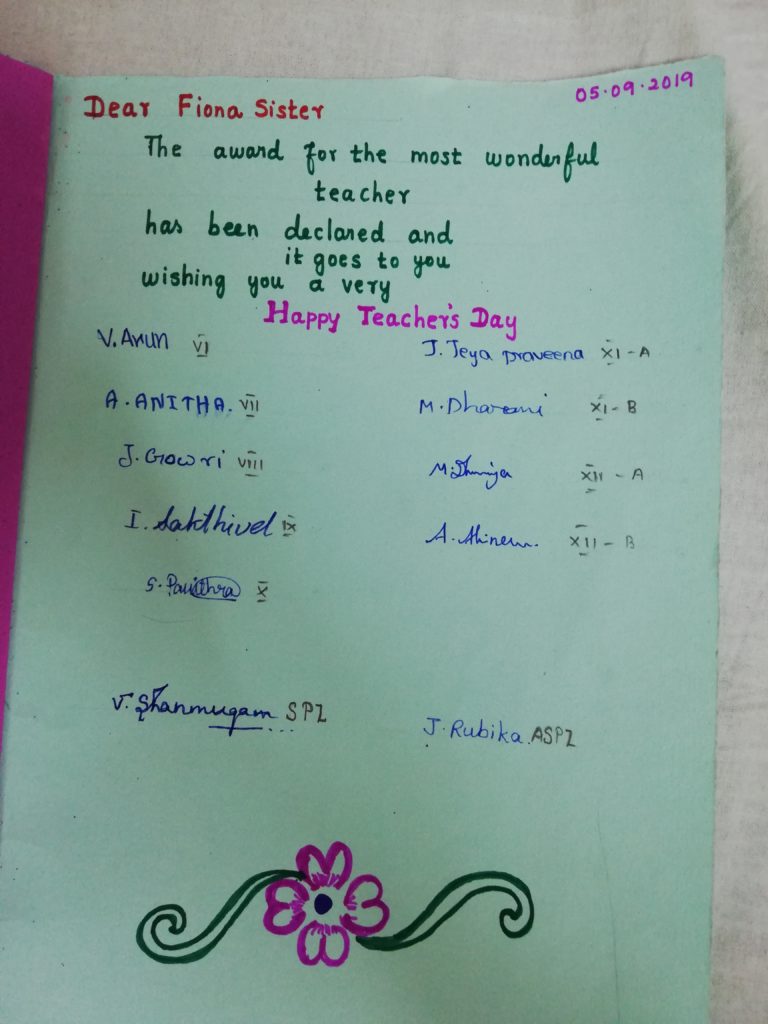 05.09.2019
Dear Fiona Sister
The award for the most wonderful
teacher
has been declared and
it goes to you
wishing you a very
Happy Teacher's Day
V. Arun VI
J. Jeya praveena XI - A
A. ANITHA. VII
M. Dharani XI - B
J. Gowri VIII
M. XII - A
I. Sakthivel IX
A. XII - B
S. Pavithra X
V. Shanmugam SPL
J. Rubika. ASPL